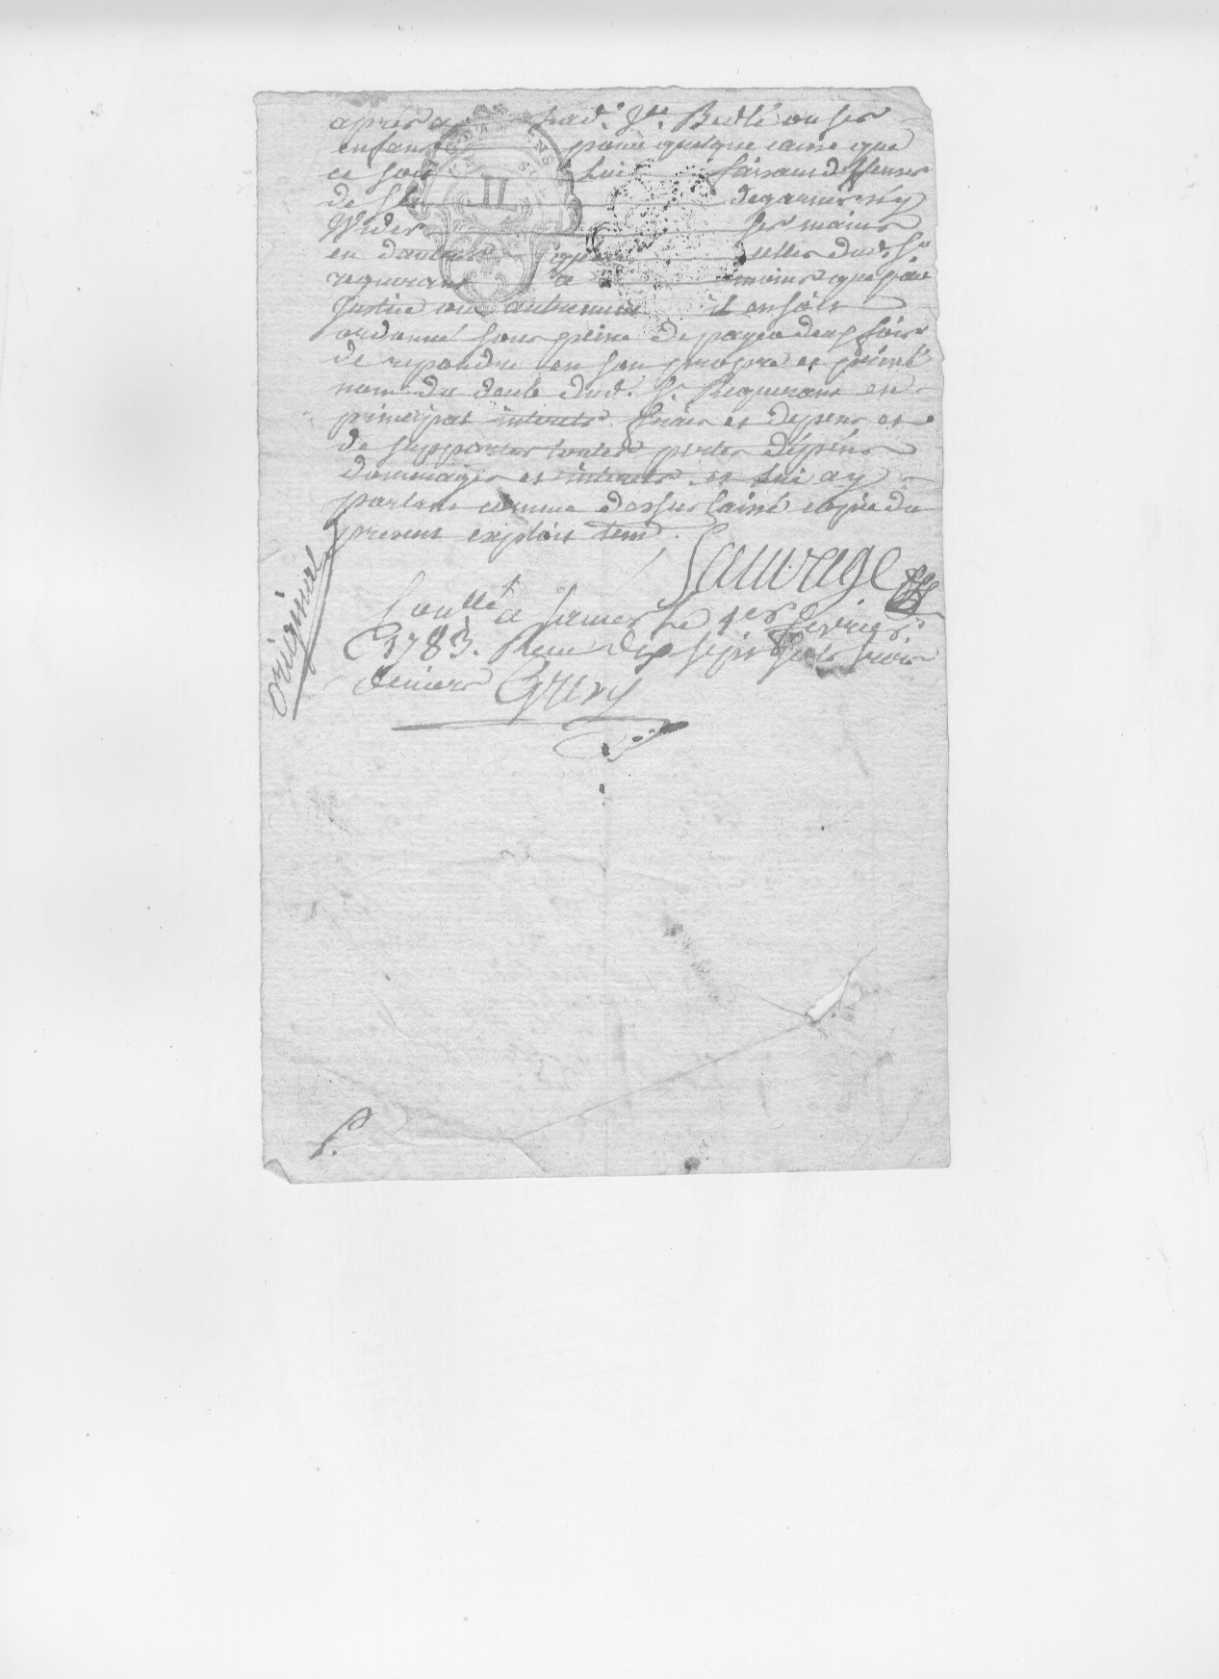 apres a aud. Jn. Bedlé ou ses
enfans pour quelque cause que
ce soit Luy faisant deffenses
de se degarnir ny
Wider ses mains
en dautres que celles dud. Sr
requerant a moins que par
Justice ou autrement il en soit
ordonné sous peine de payer deux fois
de repondre en son propre et privé
nom du double dud. Sr. Requerant en
principal interets frais et depens et
de supporter toutes pertes dépens
dommages et interets et lui ay
parlant comme dessus laissé copie du
present exploit
Sauvage
original
Conllé a Samer le 1er fevrier
1783. Recu dix sept sols trois
deniers Grevy
II